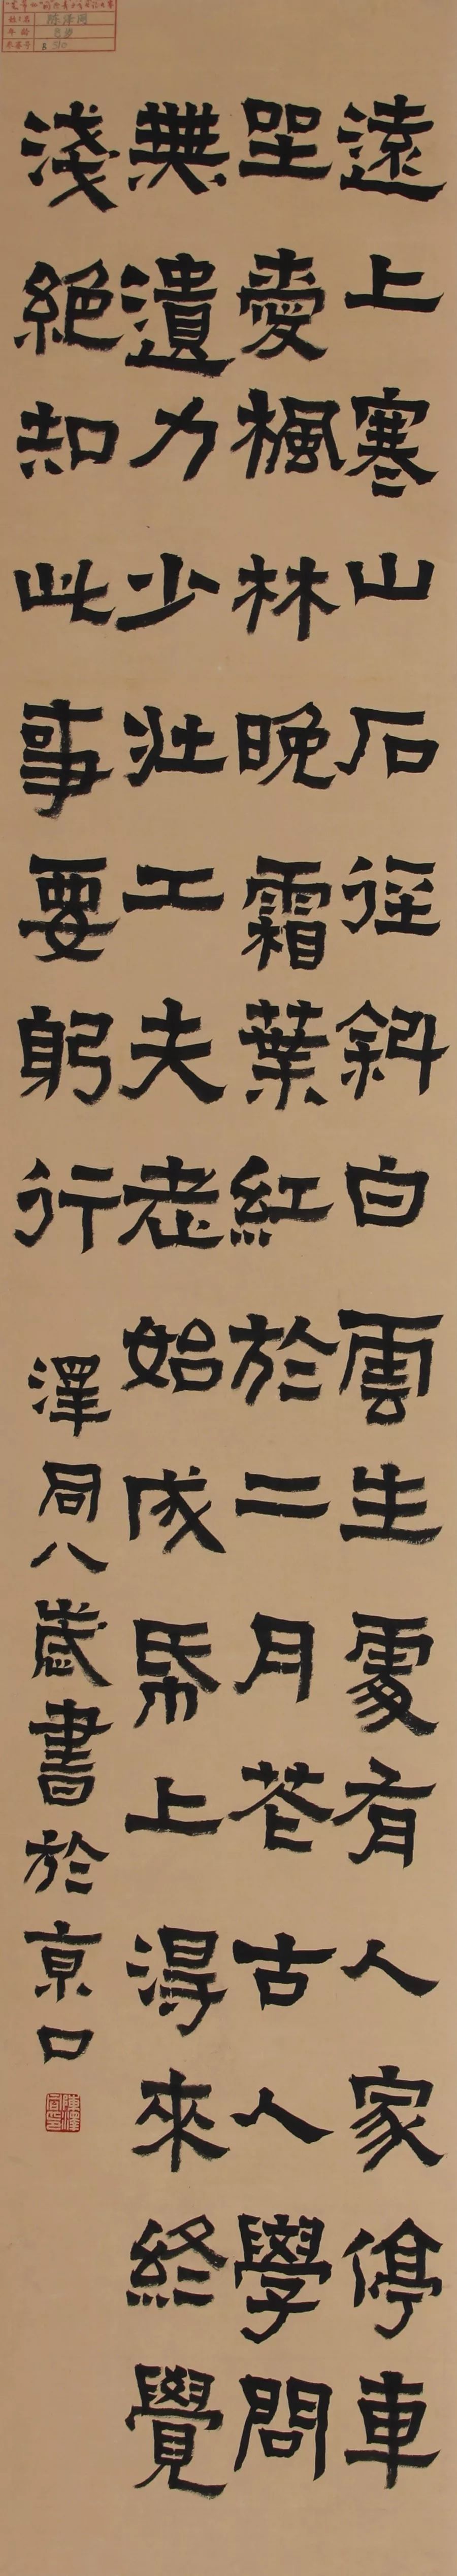 遠上寒山石徑斜白雲生處有人家停車
坐愛楓林晚霜葉紅於二月花古人學問
無遺力少壯工夫老始成帋上得來終覺
淺絕知此事要躬行
澤同八歲書於京口
姓名 陈泽同
年龄 8岁